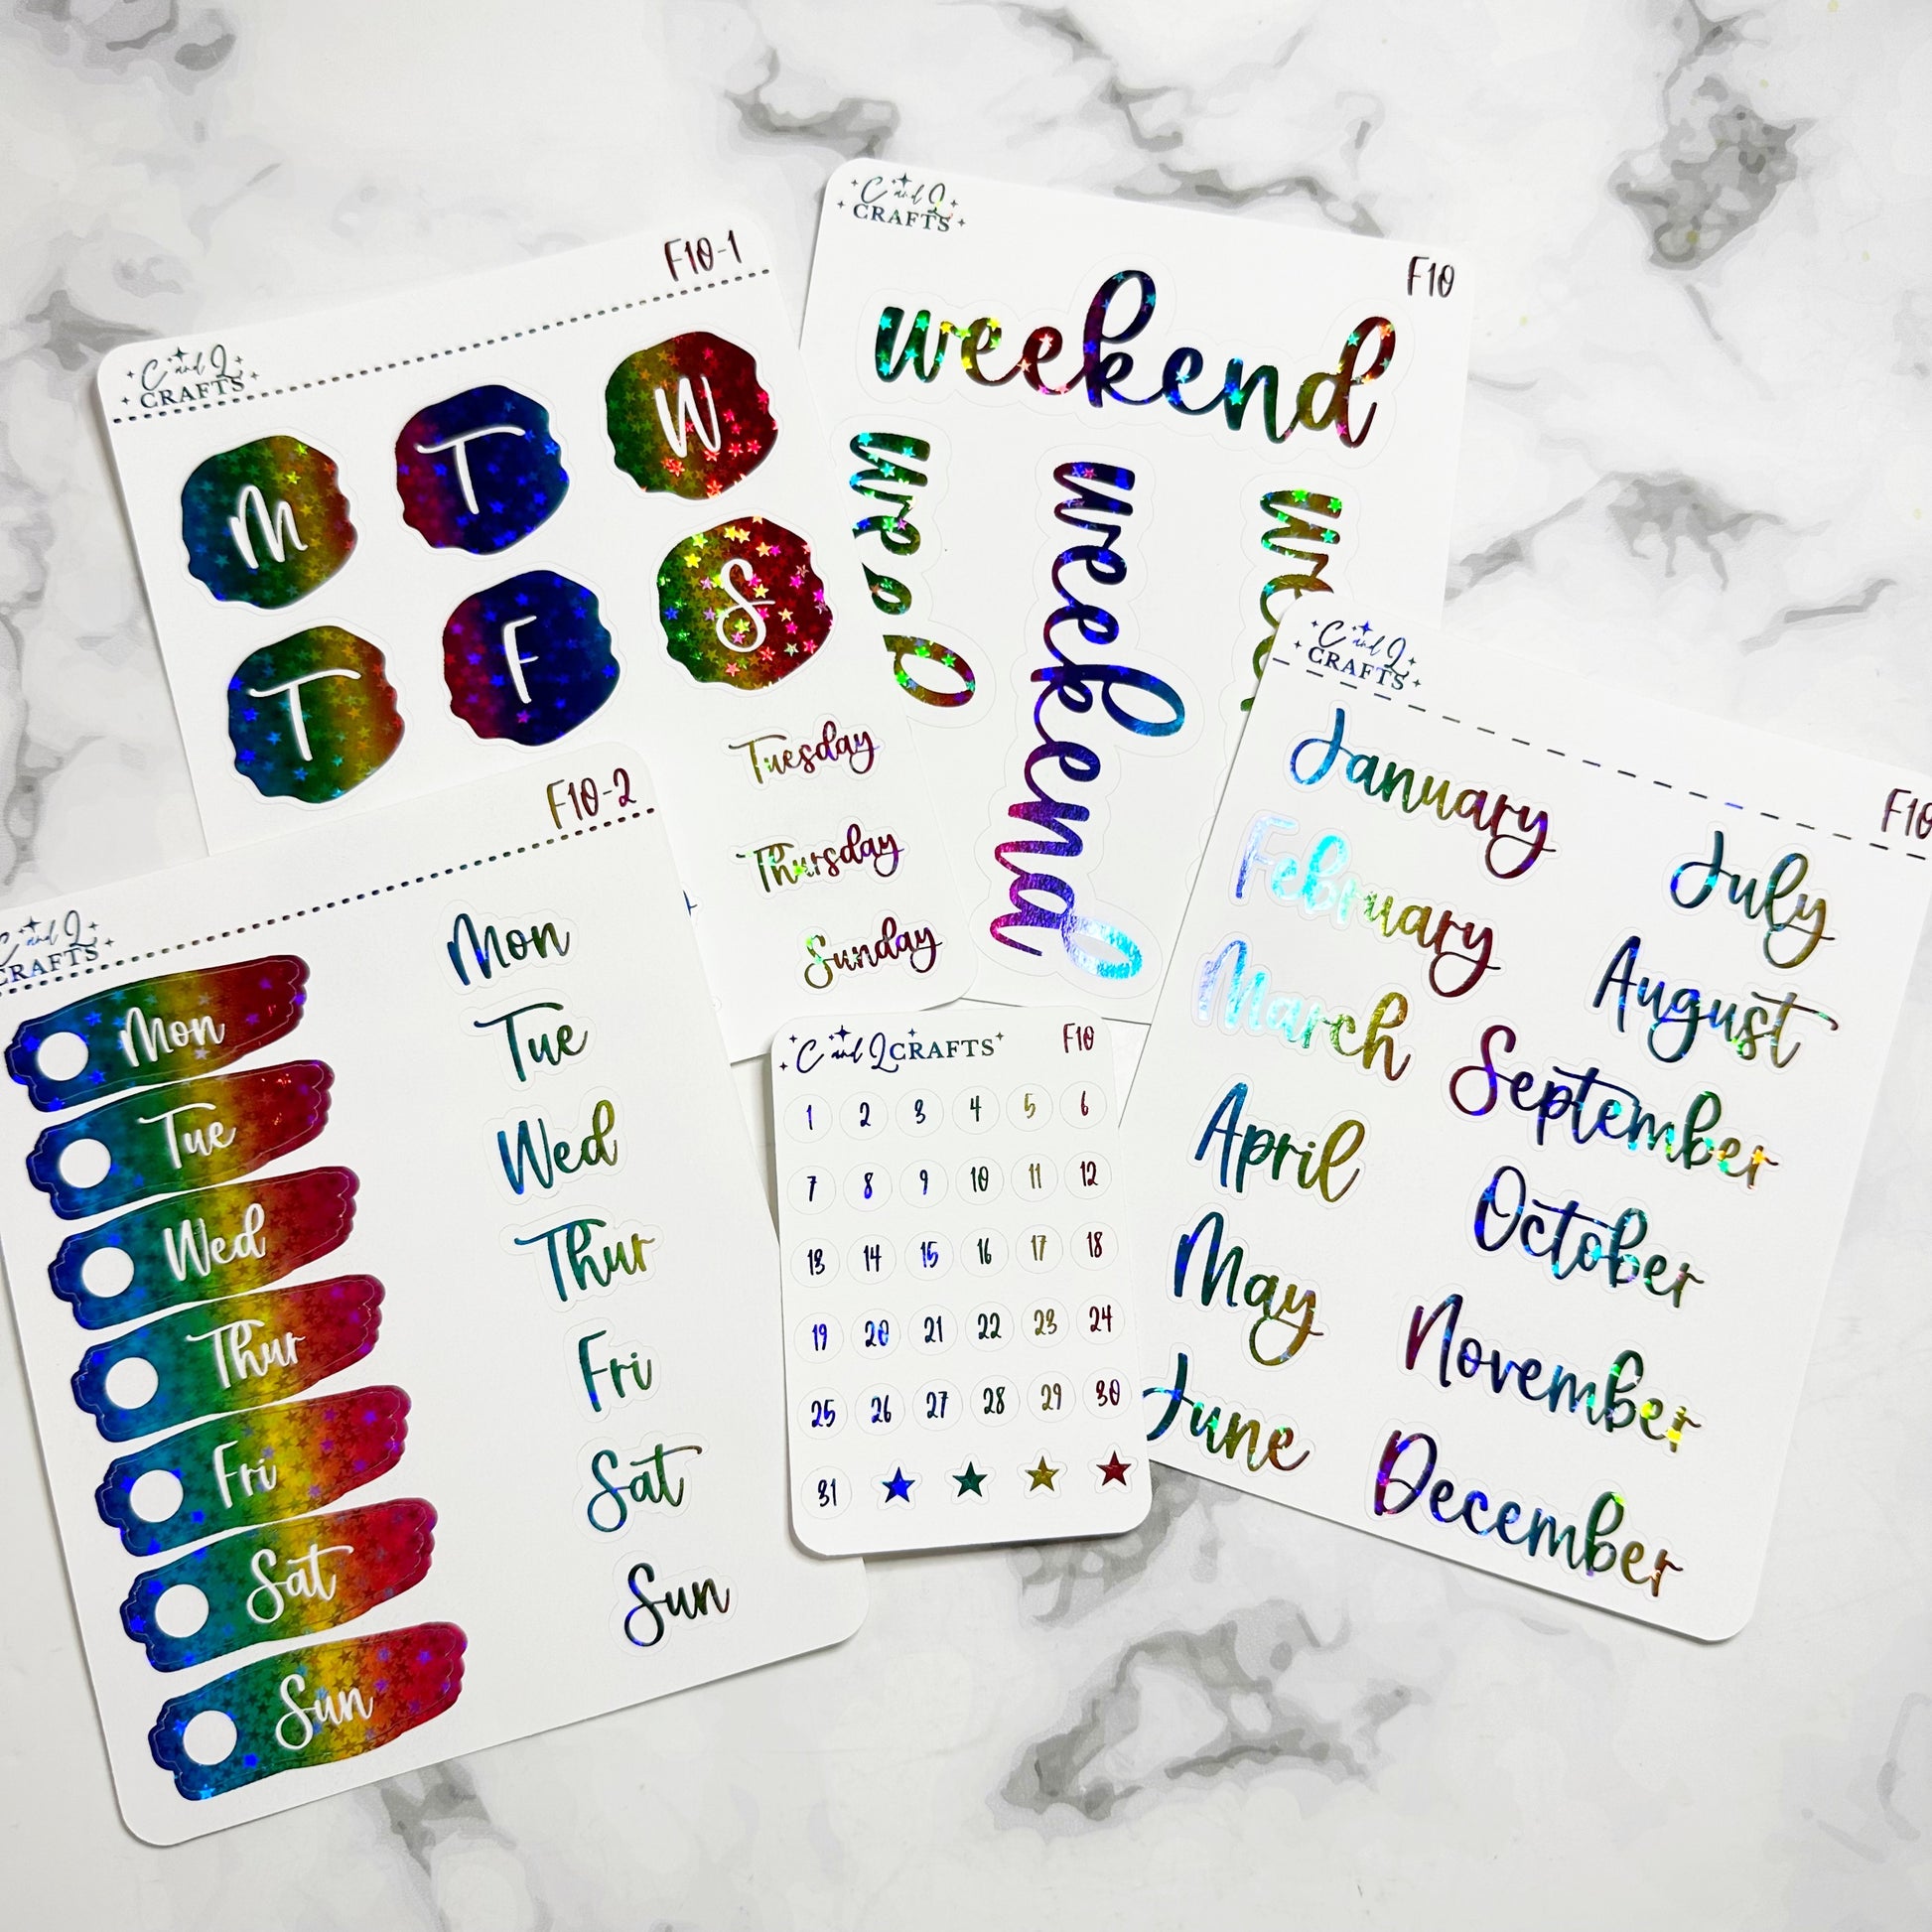 C and L
CRAFTS
F10-1
M T W
T F S
Tuesday
Thursday
Sunday
C and L
CRAFTS
F10
weekend
weekend
C and L
CRAFTS
January
February
March
April
May
June
July
August
September
October
November
December
C and L
CRAFTS
F10-2
Mon
Tue
Wed
Thur
Fri
Sat
Sun
Mon
Tue
Wed
Thur
Fri
Sat
Sun
C and L CRAFTS F10
1 2 3 4 5 6
7 8 9 10 11 12
13 14 15 16 17 18
19 20 21 22 23 24
25 26 27 28 29 30
31